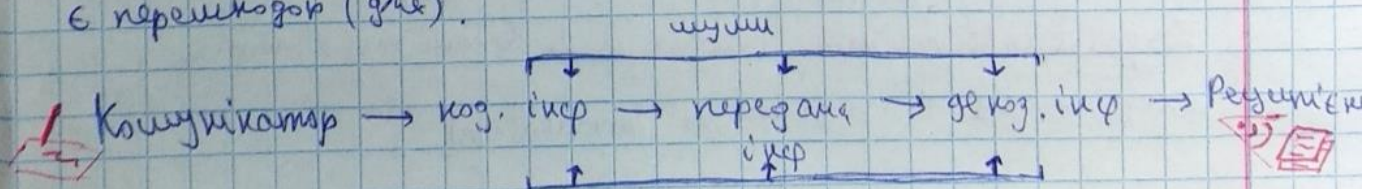 є перешкодор (для).
шуми
Комунікатор → код. інф → передача → декод. інф → Реципієн
інф